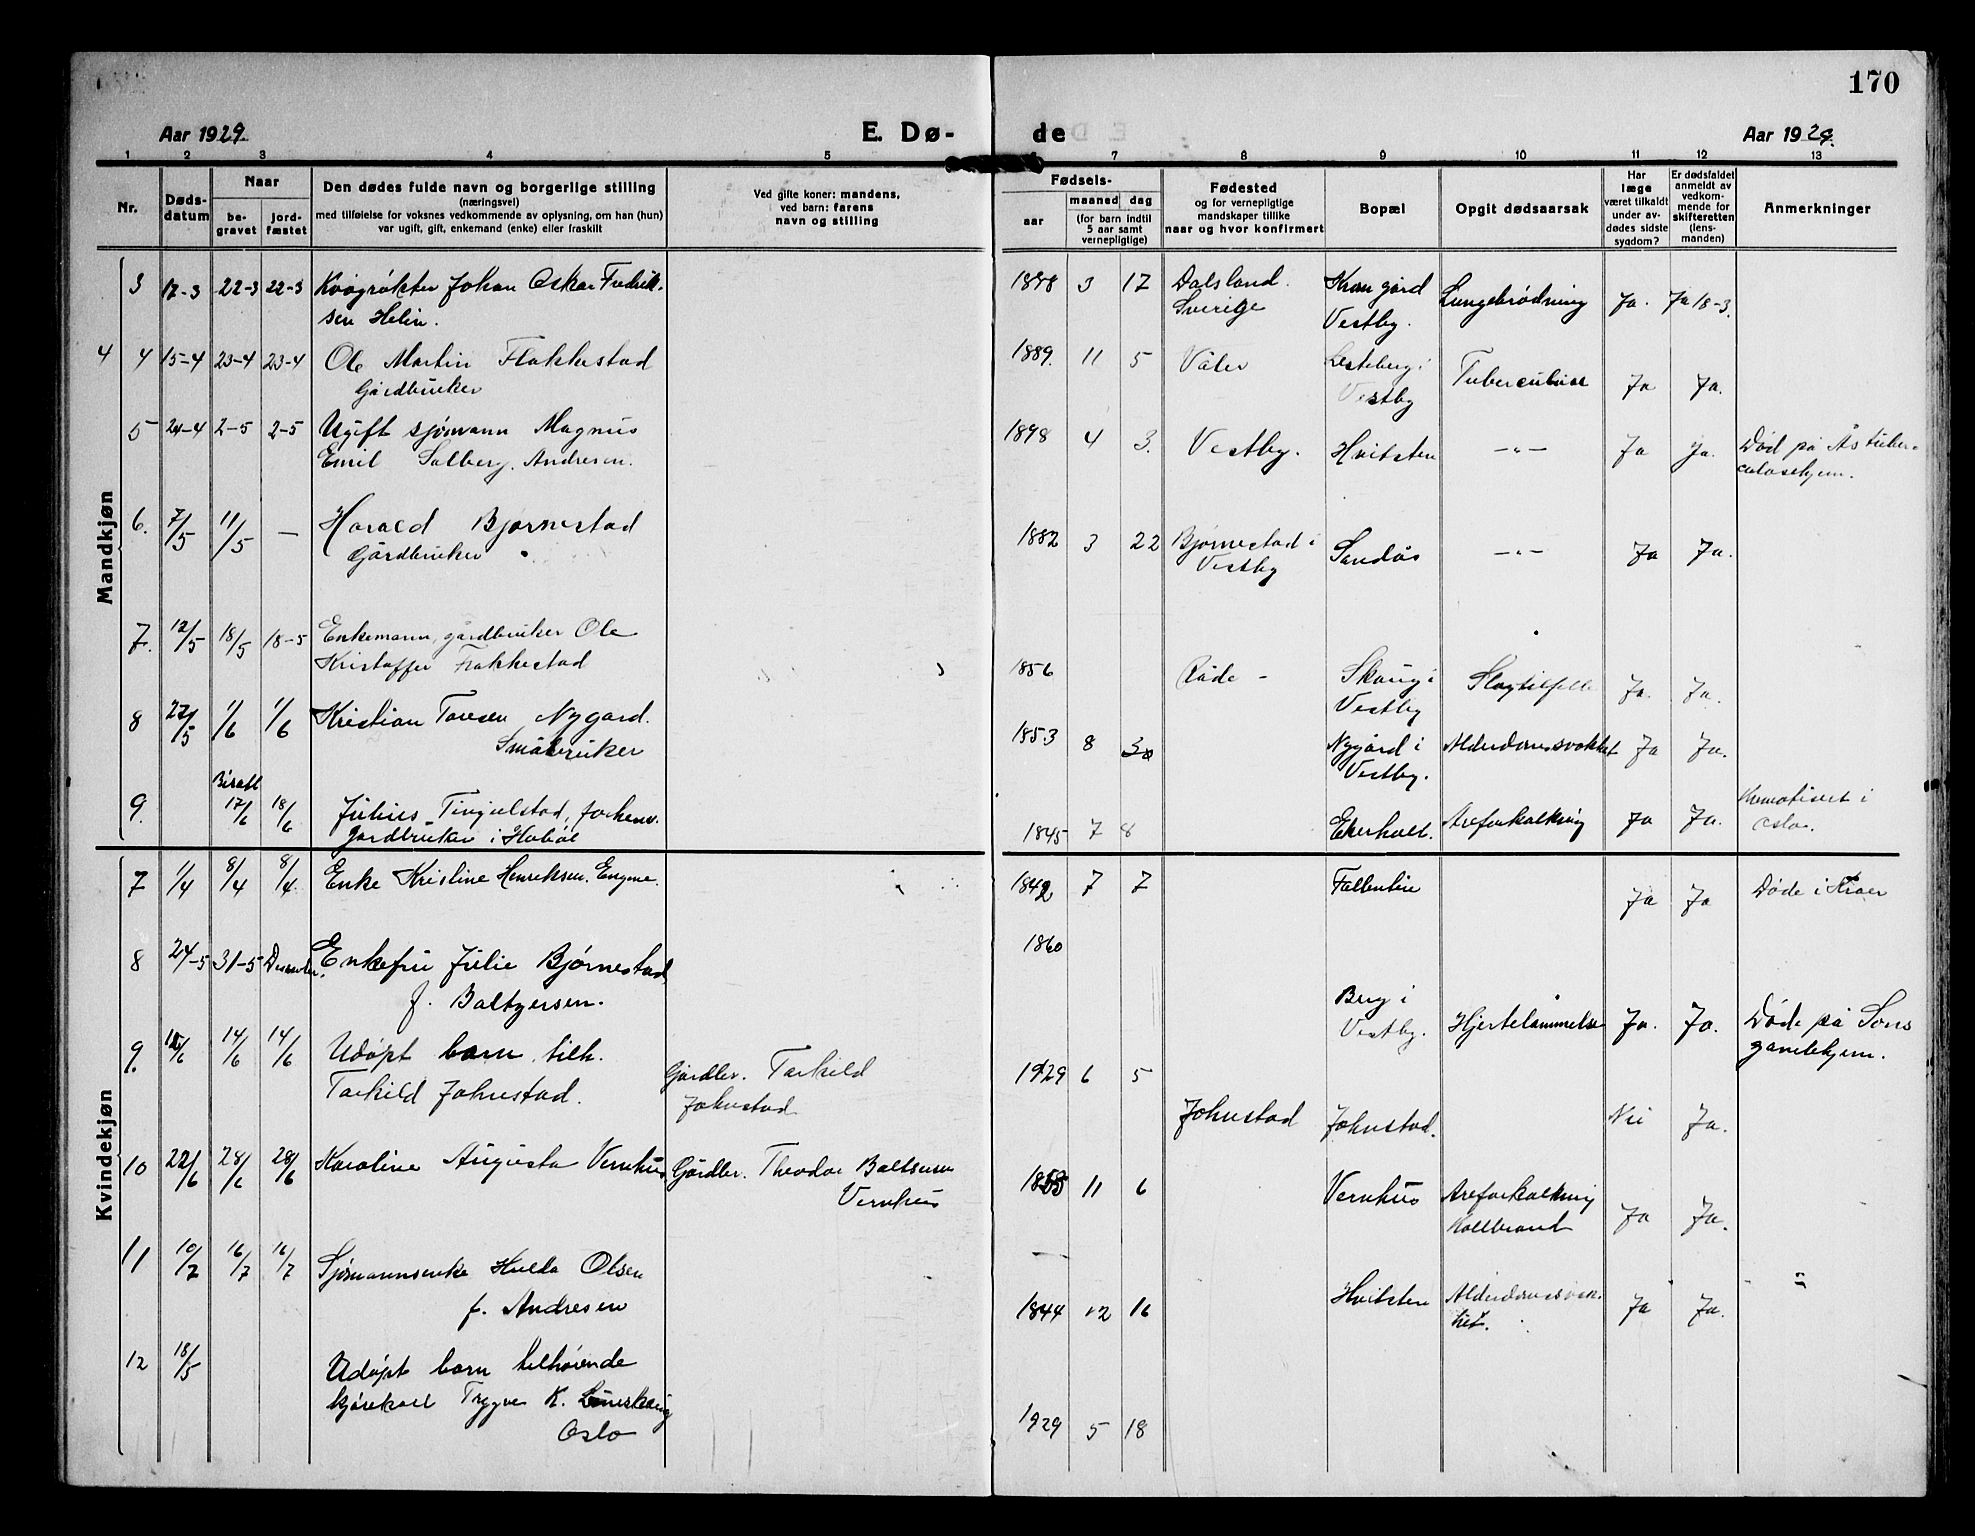 170
Aar 1929. E. Dø- de Aar 1929.
1 2 3 4 5 7 8 9 10 11 12 13
Nr.
Døds-
datum
Naar
be-
gravet
jord-
fæstet
Den dødes fulde navn og borgerlige stilling
(næringsvei)
med tilføielse for voksnes vedkommende av oplysning, om han (hun)
var ugift, gift, enkemand (enke) eller fraskilt
Ved gifte koner: mandens,
ved barn: farens
navn og stilling
Fødsels-
aar
maaned dag
(for barn indtil
5 aar samt
vernepligtige)
Fødested
og for vernepligtige
mandskaper tillike
naar og hvor konfirmert
Bopæl
Opgit dødsaarsak
Har
læge
været tilkaldt
under av-
dødes sidste
sygdom?
Er dødsfaldet
anmeldt av
vedkom-
mende for
skifteretten
(lens-
manden)
Anmerkninger
Mandkjøn
3 17-3 22-3 22-3 Kvægrøkter Johan Oskar Fredrik- 1898 3 17 Dalsland. Krom gård Lungebrødning Ja. Ja 18-3.
sen Helin. Sverige Vestby.
4 4 15-4 23-4 23-4 Ole Martin Flakkestad 1889. 11 5 Våler Vestby Tuberculose Ja Ja.
Gårdbruker
5 24-4 2-5 2-5 Ugift sjømann Magnus 1898 4 3. Vestby. Hvitsten -"- Ja Ja. Død på Ås tuber-
Emil Solberg. Andresen. culosehjem.
6. 7/5 11/5 - Harald Bjørnestad 1882 3 22 Bjørnestad i Sandås -"- Ja Ja.
Gårdbruker Vestby
7. 12/5 18/5 18-5 Enkemann, gårdbruker Ole 1856 Råde - Skaug i Slagtilfelle Ja. Ja.
Kristoffer Flakkestad Vestby
8 27/5 1/6 1/6 Kristian Toresen Nygård. 1853 8 30 Nygård i Alderdomssvakhet Ja Ja.
Småbruker Vestby.
9. Bisatt 17/6 18/6 Julius Tingulstad, forhenv. 1845 7 8 Ekerholt. Åreforkalkning Ja Ja. Kremotiset i
gårdbruker i Hobøl Oslo.
Kvindekjøn
7 1/4 8/4 8/4 Enke Kristine Henriksen. Engene. 1842 7 7 Fallentin Ja Ja Døde i Kroer
8 24-5 31-5 Enkefru Julie Bjørnestad 1860 Berg i Hjertelammelse Ja. Ja. Døde på Sons
f. Baltzersen. Vestby. gamlehjem.
9. 14/6 14/6 Udøpt barn tilh. Gårdbr. Torkild 1929 6 5 Johnstad Johnstad. Nei Ja.
Torkild Johnstad. Johnstad
10 22/6 28/6 28/6 Karoline Augusta Vernhus Gårdbr. Theodor Baltsersen 11 6 Vernhus Åreforkalkning Ja Ja.
Vernhus Kollbrand
11 10/7 16/7 16/7 Sjømannsenke Hulda Olsen 1844 12 16 Hvitsten Alderdomssvak- Ja Ja.
f. Andresen het.
12 18/5 Udøpt barn tilhørende 1929 5 18
Trygve K.
Oslo